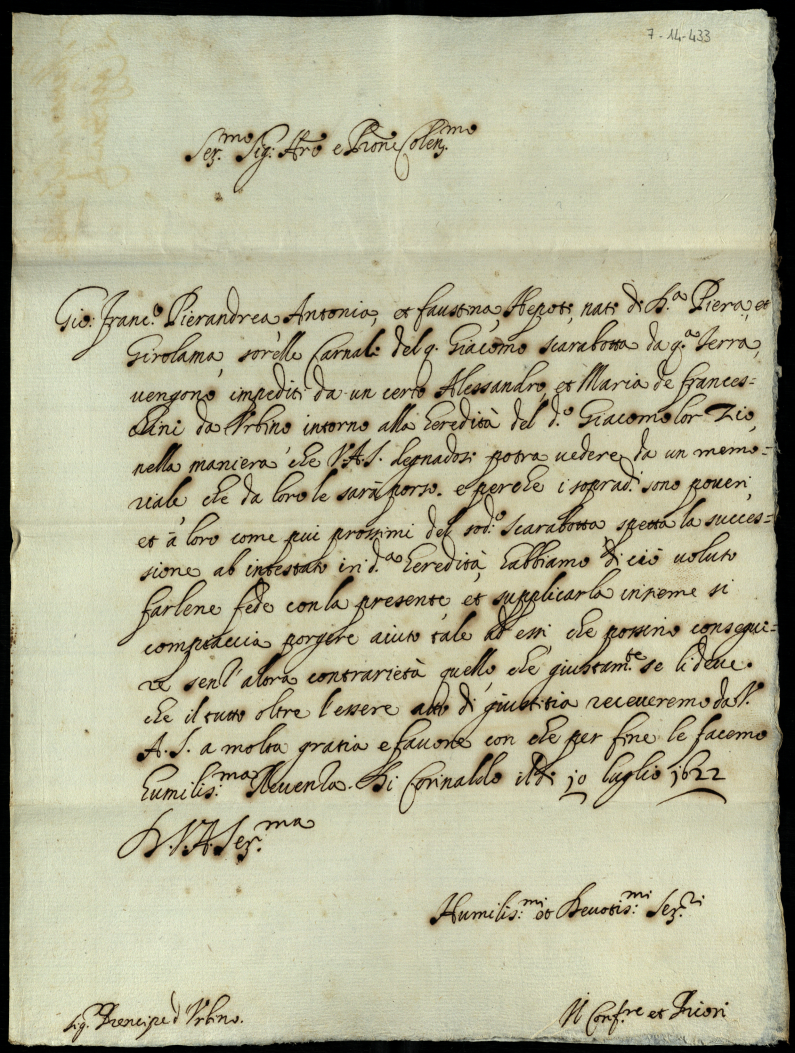 7-14-433
Ser.mo Sig.r Nro e Prone Colen.mo
Gio: Franc.o Pierandrea Antonia, et Faustina Nepoti, nati di D.a Piera, et
Girolama sorelle Carnali del q. Giacomo Scarabotta da q.a Terra,
vengono impediti da un certo Alessandro, et Maria de Frances=
chini da Urbino intorno alla heredità del d.o Giacomo lor Zio,
nella maniera che V.A.S. degnadosi potra vedere da un memo=
riale che da loro le sarà porso. e perche i soprad.i sono poveri,
et à loro come piu prossimi del sod.o Scarabotta spetta la succes=
sione ab intestato in d.a heredità, habbiamo di ciò voluto
farlene fede con la presente, et supplicarla insieme si
compiaccia porgere aiuto tale ad essi che possino consegui=
re senz'altra contrarietà quello che giustam.te se li deve.
che il tutto oltre l'essere atto di giustitia receveremo da V.
A.S. a molta gratia e favore con che per fine le facemo
humilis.ma Reverenza. Di Corinaldo il dì 10 luglio 1622
D.V.A.Ser.ma
Humilis.mi et Devotis.mi Ser.ri
Sig.r Prencipe d'Urbino.
Il Conf.re et Priori